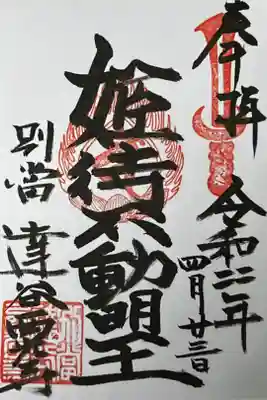 奉拝
令和二年
四月廿三日
姫待不動明王
別當 達谷西光寺